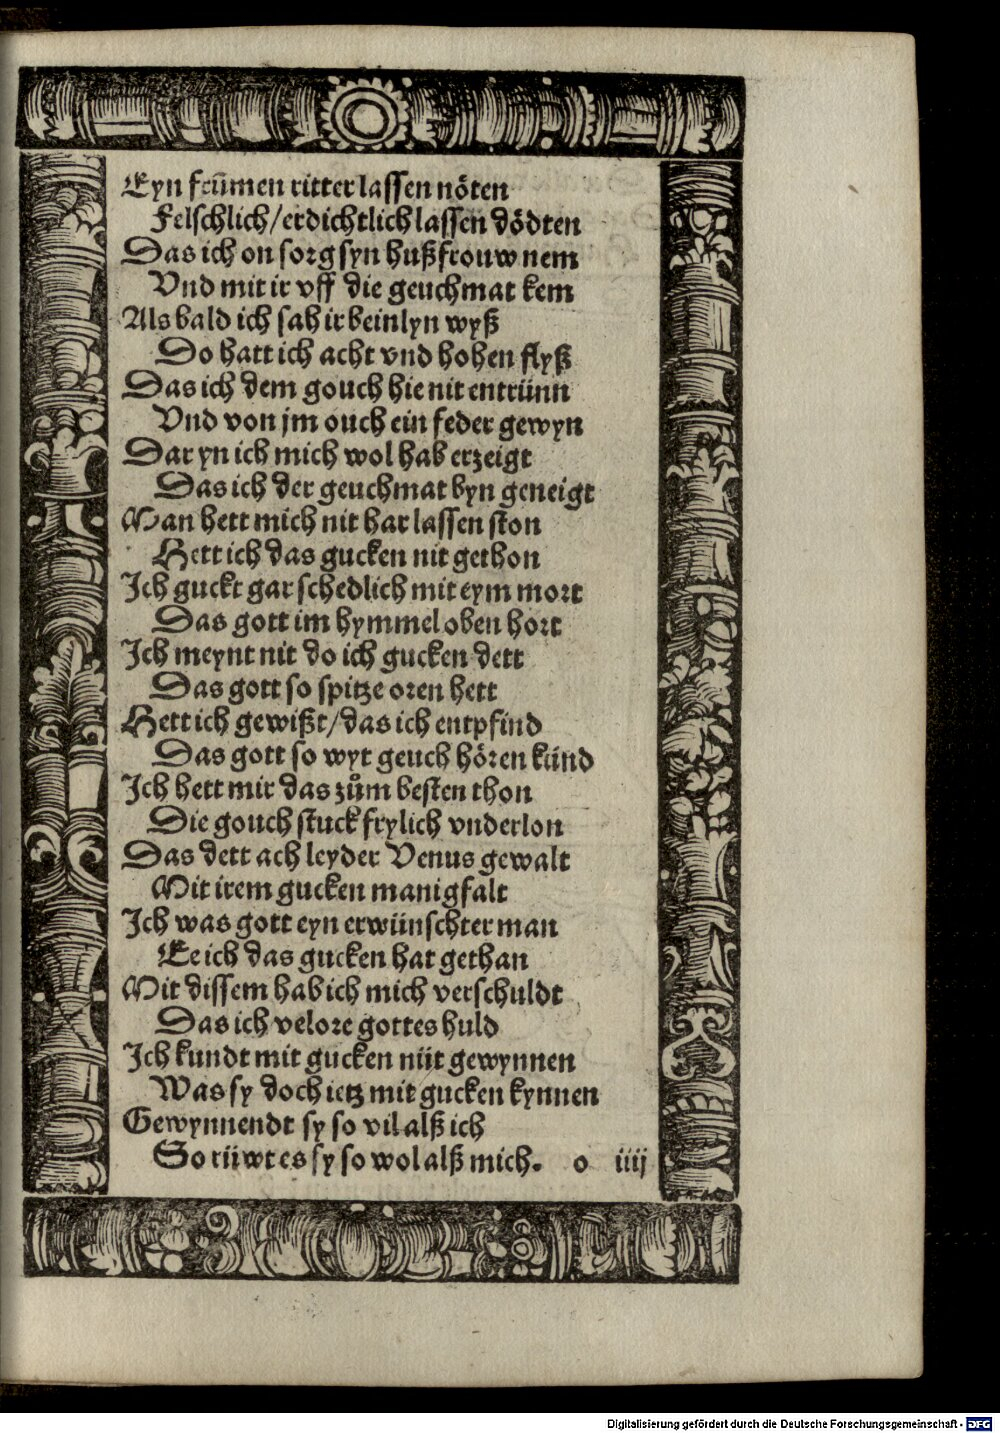 Eyn frümmen ritter lassen nöten
Felschlich/erdichtlich lassen dödten
Das ich on sorg syn hußfrouw nem
Vnd mit ir vff die geuchmat kem
Als bald ich sah ir beinlyn wyß
Do hatt ich acht vnd hohen flyß
Das ich dem gouch hie nit entrünn
Vnd von jm ouch ein feder gewyn
Dar yn ich mich wol hab erzeigt
Das ich der geuchmat byn geneigt
Man hett mich nit har lassen ston
Hett ich das gucken nit gethon
Ich guckt gar schedlich mit eym mort
Das gott im hymmel oben hort
Ich meynt nit do ich gucken dett
Das gott so spitze oren hett
Hett ich gewißt/das ich entpfind
Das gott so wyt geuch hören künd
Ich hett mir das zům besten thon
Die gouch stuck frylich vnderlon
Das dett ach leyder Venus gewalt
Mit irem gucken manigfalt
Ich was gott eyn erwünschter man
Ee ich das gucken hat gethan
Mit dissem hab ich mich verschuldt
Das ich velore gottes huld
Ich kundt mit gucken nüt gewynnen
Was sy doch ietz mit gucken kynnen
Gewynnendt sy so vil alß ich
So rüwt es sy so wol alß mich. o iiij
Digitalisierung gefördert durch die Deutsche Forschungsgemeinschaft - DFG